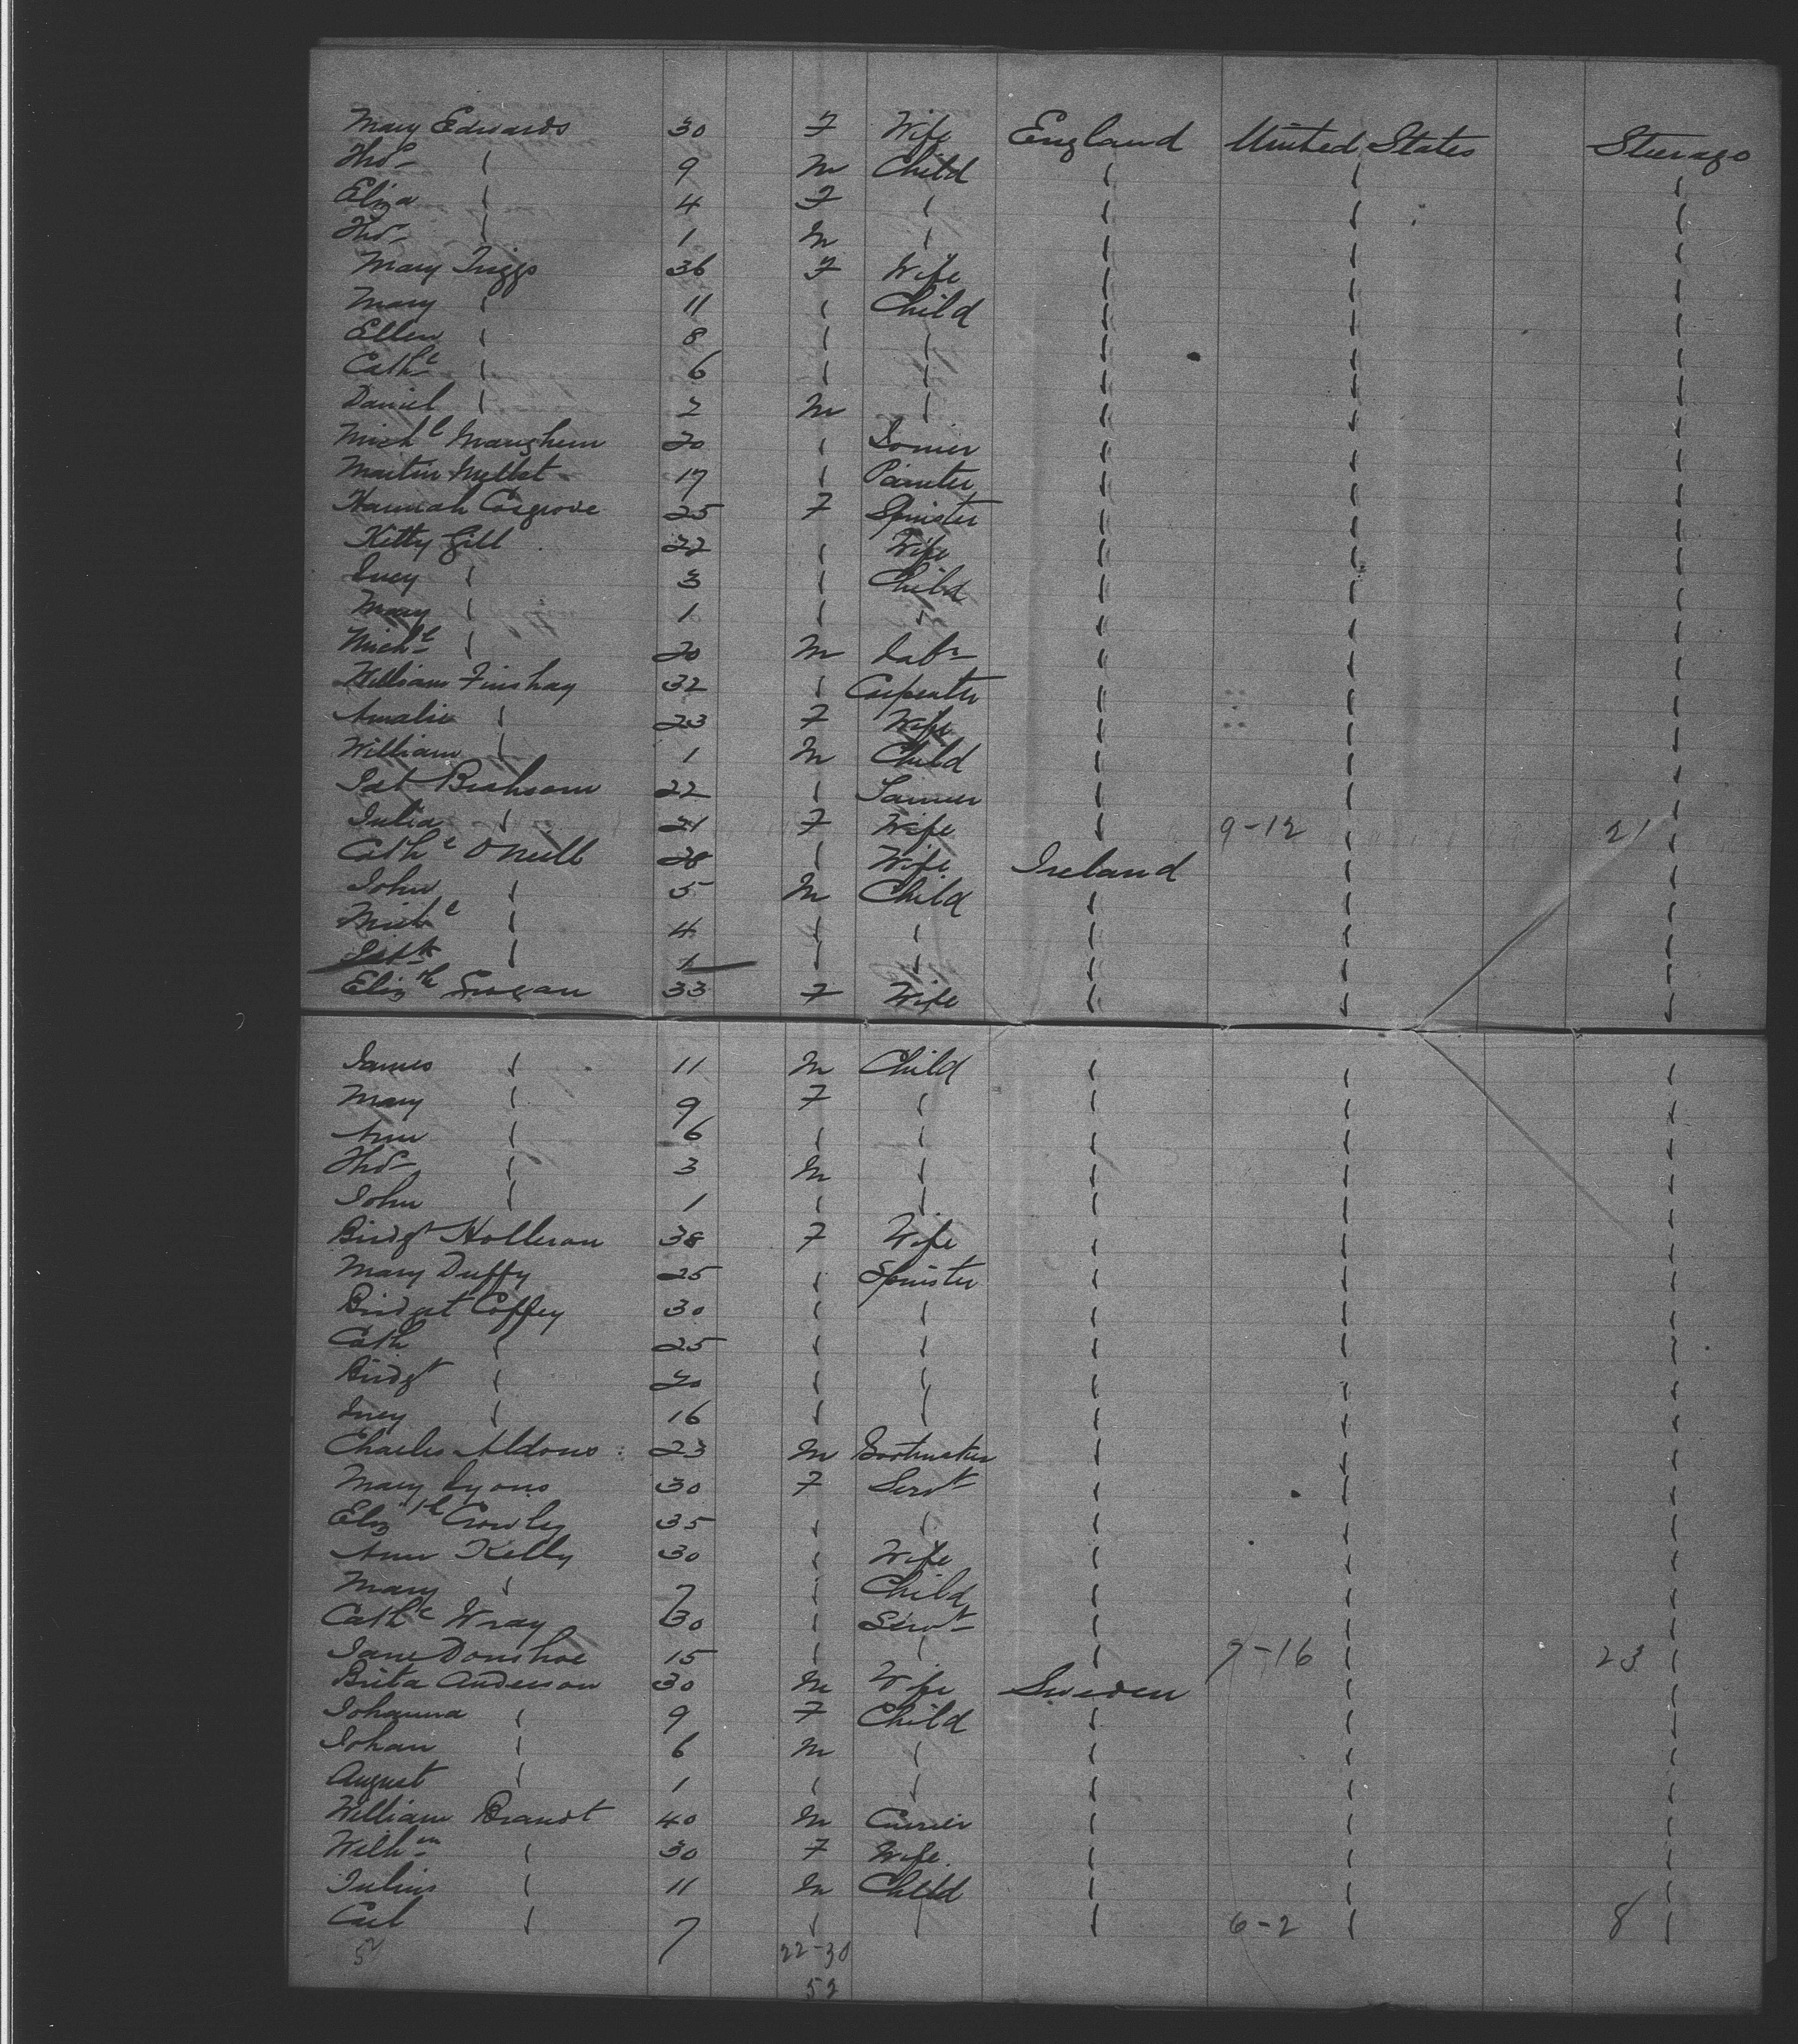 Mary Edwards 30 F Wife England United States Steerage
Thos 9 M Child
Eliza 4 F
Thos 1 M
Mary Triggs 36 F Wife
Mary 11 Child
Ellen 8
Cathe 6
Daniel 2 M
Michl 20
Martin Mellet 17 Painter
Hannah Cosgrove 25 F Spinster
Kitty Gill 22 Wife
Lucy 3 Child
Mary 1
Michl 20 M Labr
William Finshay 32 Carpenter
Amalie 23 F Wife
William 1 M Child
Pat 22
Julia 21 F Wife 9-12 21
Cathe O'Neill 28 Wife Ireland
John 5 M Child
Michl 4
1
Elizth 33 F Wife
James 11 M Child
Mary 9 F
Ann 6
Thos 3 M
John 1
Bridgt Holleran 38 F Wife
Mary Duffy 25 Spinster
Bridget Coffey 30
Cath 25
Bridgt 20
Lucy 16
Charles Aldous 23 M Bootmaker
Mary Lyons 30 F Servt
Elizth Crowley 35
Ann Kelly 30 Wife
Mary 7 Child
Cathe Wray 30 Servt
Jane Donohoe 15 7-16 23
Brita Anderson 30 M Wife Sweden
Johanna 9 F Child
Johan 6 M
August 1
William Brandt 40 M Currier
Wilhm 30 F Wife
Julius 11 M Child
Carl 7 6-2 8
22-30
52